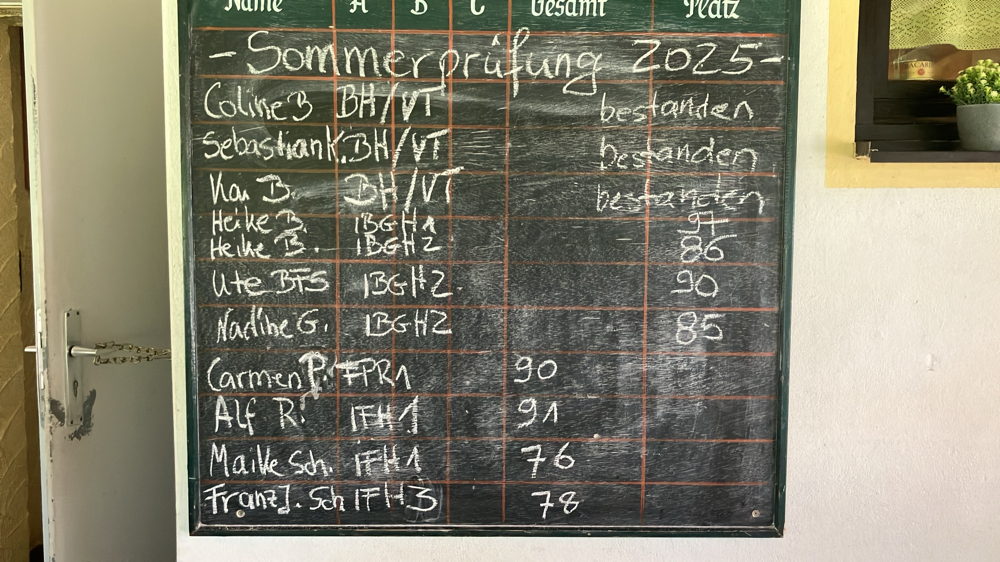 Name A B C Gesamt Platz
- Sommerprüfung 2025 -
Coline B BH/VT bestanden
Sebastian K. BH/VT bestanden
Kai B. BH/VT bestanden
Heike B. IBGH1 97
Heike B. IBGH2 86
Ute BTS IBGH2 90
Nadine G. IBGH2 85
Carmen P. FPR1 90
Alf R. IFH1 91
Maike Sch. IFH1 76
Franz J. Sch IFH3 78